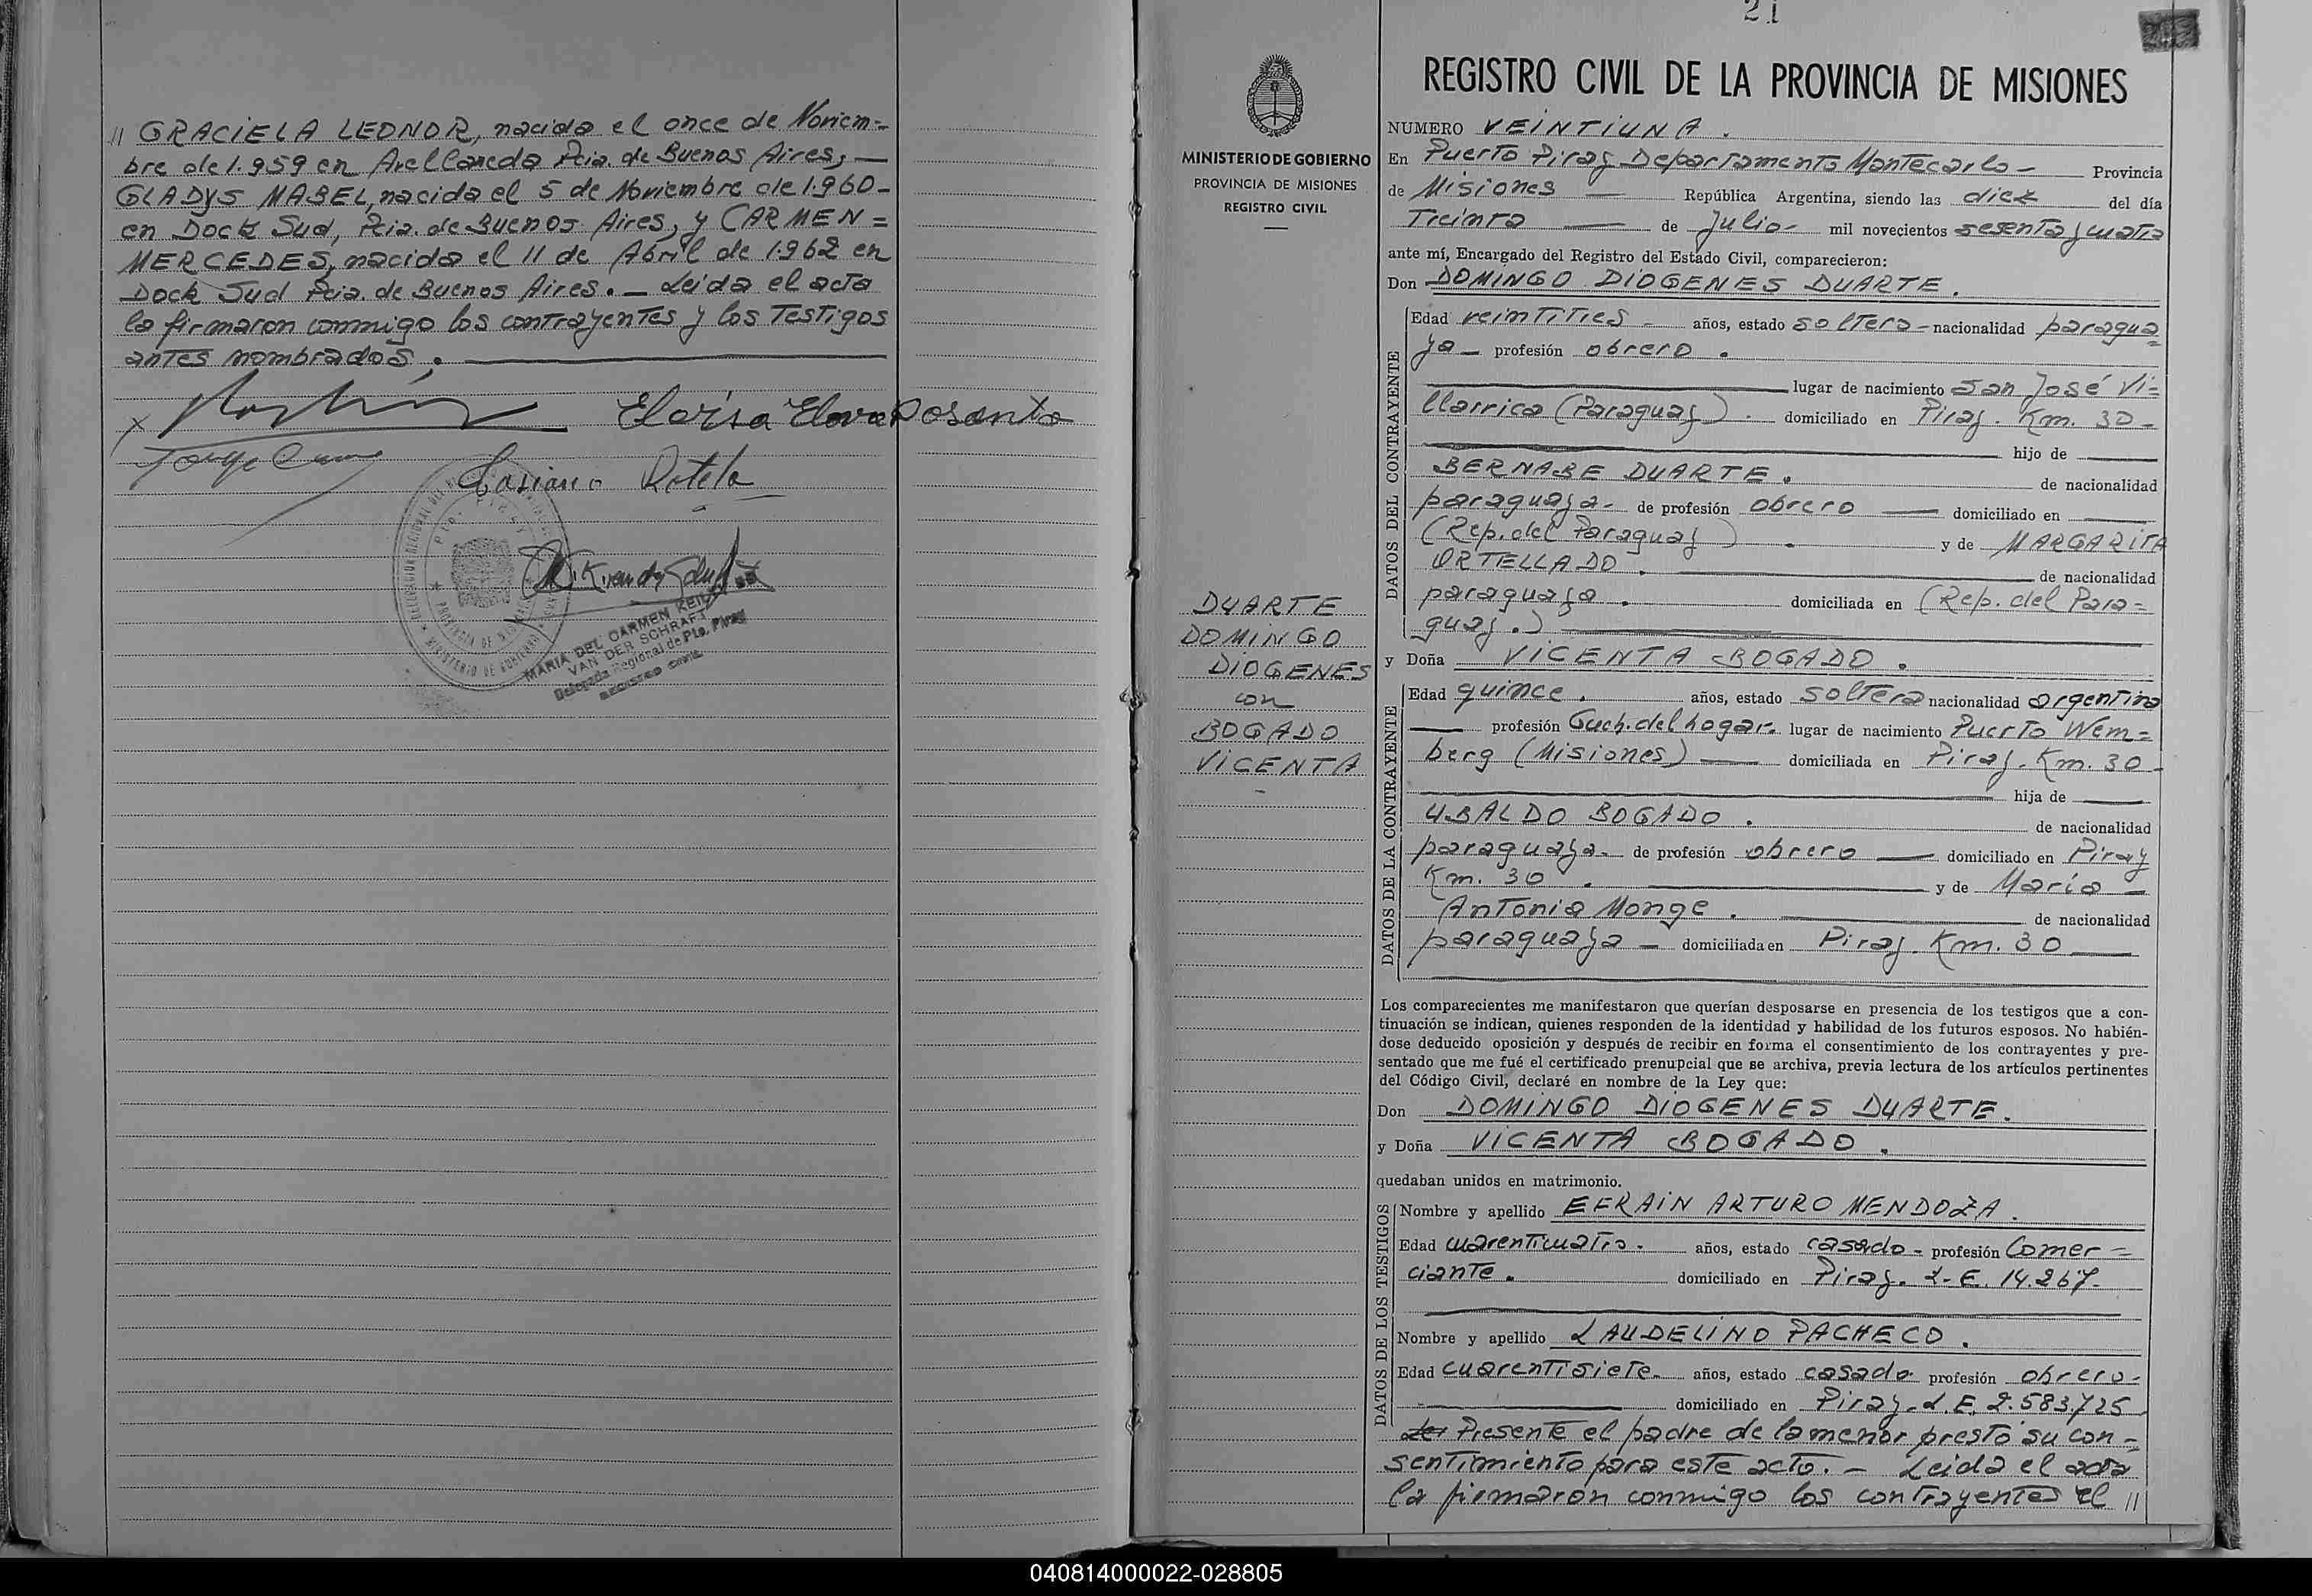 // GRACIELA LEONOR, nacida el once de Noviem=
bre de 1.959 en Avellaneda Pcia. de Buenos Aires, —
GLADYS MABEL, nacida el 5 de Noviembre de 1.960 -
en Dock Sud, Pcia. de Buenos Aires, y CARMEN =
MERCEDES, nacida el 11 de Abril de 1.962 en
Dock Sud Pcia. de Buenos Aires. — Leida el acta
la firmaron conmigo los contrayentes y los Testigos
antes nombrados.
Casiano Rotela
MARIA DEL CARMEN KEIL
VAN DER SCHRAFT
Delegada Regional de Pto. Piray
REGISTRO CIVIL
21
MINISTERIO DE GOBIERNO
PROVINCIA DE MISIONES
REGISTRO CIVIL
DUARTE
DOMINGO
DIOGENES
con
BOGADO
VICENTA
REGISTRO CIVIL DE LA PROVINCIA DE MISIONES
NUMERO VEINTIUNA.
En Puerto Piray Departamento Montecarlo — Provincia
de Misiones — República Argentina, siendo las diez del día
Treinta — de Julio - mil novecientos sesenta y cuatro
ante mí, Encargado del Registro del Estado Civil, comparecieron:
Don DOMINGO DIOGENES DUARTE.
DATOS DEL CONTRAYENTE
Edad veintitres - años, estado soltero - nacionalidad paragua=
ya - profesión obrero.
lugar de nacimiento San José Vi=
llarrica (Paraguay). domiciliado en Piray. Km. 30 -
hijo de
BERNABE DUARTE. de nacionalidad
paraguaya - de profesión obrero — domiciliado en
(Rep. del Paraguay). y de MARGARITA
ORTELLADO. de nacionalidad
paraguaya. domiciliada en (Rep. del Para=
guay.)
y Doña VICENTA BOGADO.
DATOS DE LA CONTRAYENTE
Edad quince. años, estado soltera nacionalidad argentina
profesión Queh. del hogar. lugar de nacimiento Puerto Wem=
berg (Misiones) — domiciliada en Piray. Km. 30 -
hija de
UBALDO BOGADO. de nacionalidad
paraguaya - de profesión obrero — domiciliado en Piray
Km. 30. y de María -
Antonia Monge. de nacionalidad
paraguaya - domiciliada en Piray. Km. 30
Los comparecientes me manifestaron que querían desposarse en presencia de los testigos que a con-
tinuación se indican, quienes responden de la identidad y habilidad de los futuros esposos. No habién-
dose deducido oposición y después de recibir en forma el consentimiento de los contrayentes y pre-
sentado que me fué el certificado prenupcial que se archiva, previa lectura de los artículos pertinentes
del Código Civil, declaré en nombre de la Ley que:
Don DOMINGO DIOGENES DUARTE.
y Doña VICENTA BOGADO.
quedaban unidos en matrimonio.
DATOS DE LOS TESTIGOS
Nombre y apellido EFRAIN ARTURO MENDOZA.
Edad cuarenticuatro. años, estado casado - profesión Comer=
ciante. domiciliado en Piray. L.E. 14.267.
Nombre y apellido LAUDELINO PACHECO.
Edad cuarentisiete. años, estado casado profesión obrero -
domiciliado en Piray. L.E. 2.583.725
Presente el padre de la menor prestó su con=
sentimiento para este acto. — Leida el acta
la firmaron conmigo los contrayentes el //
040814000022-028805